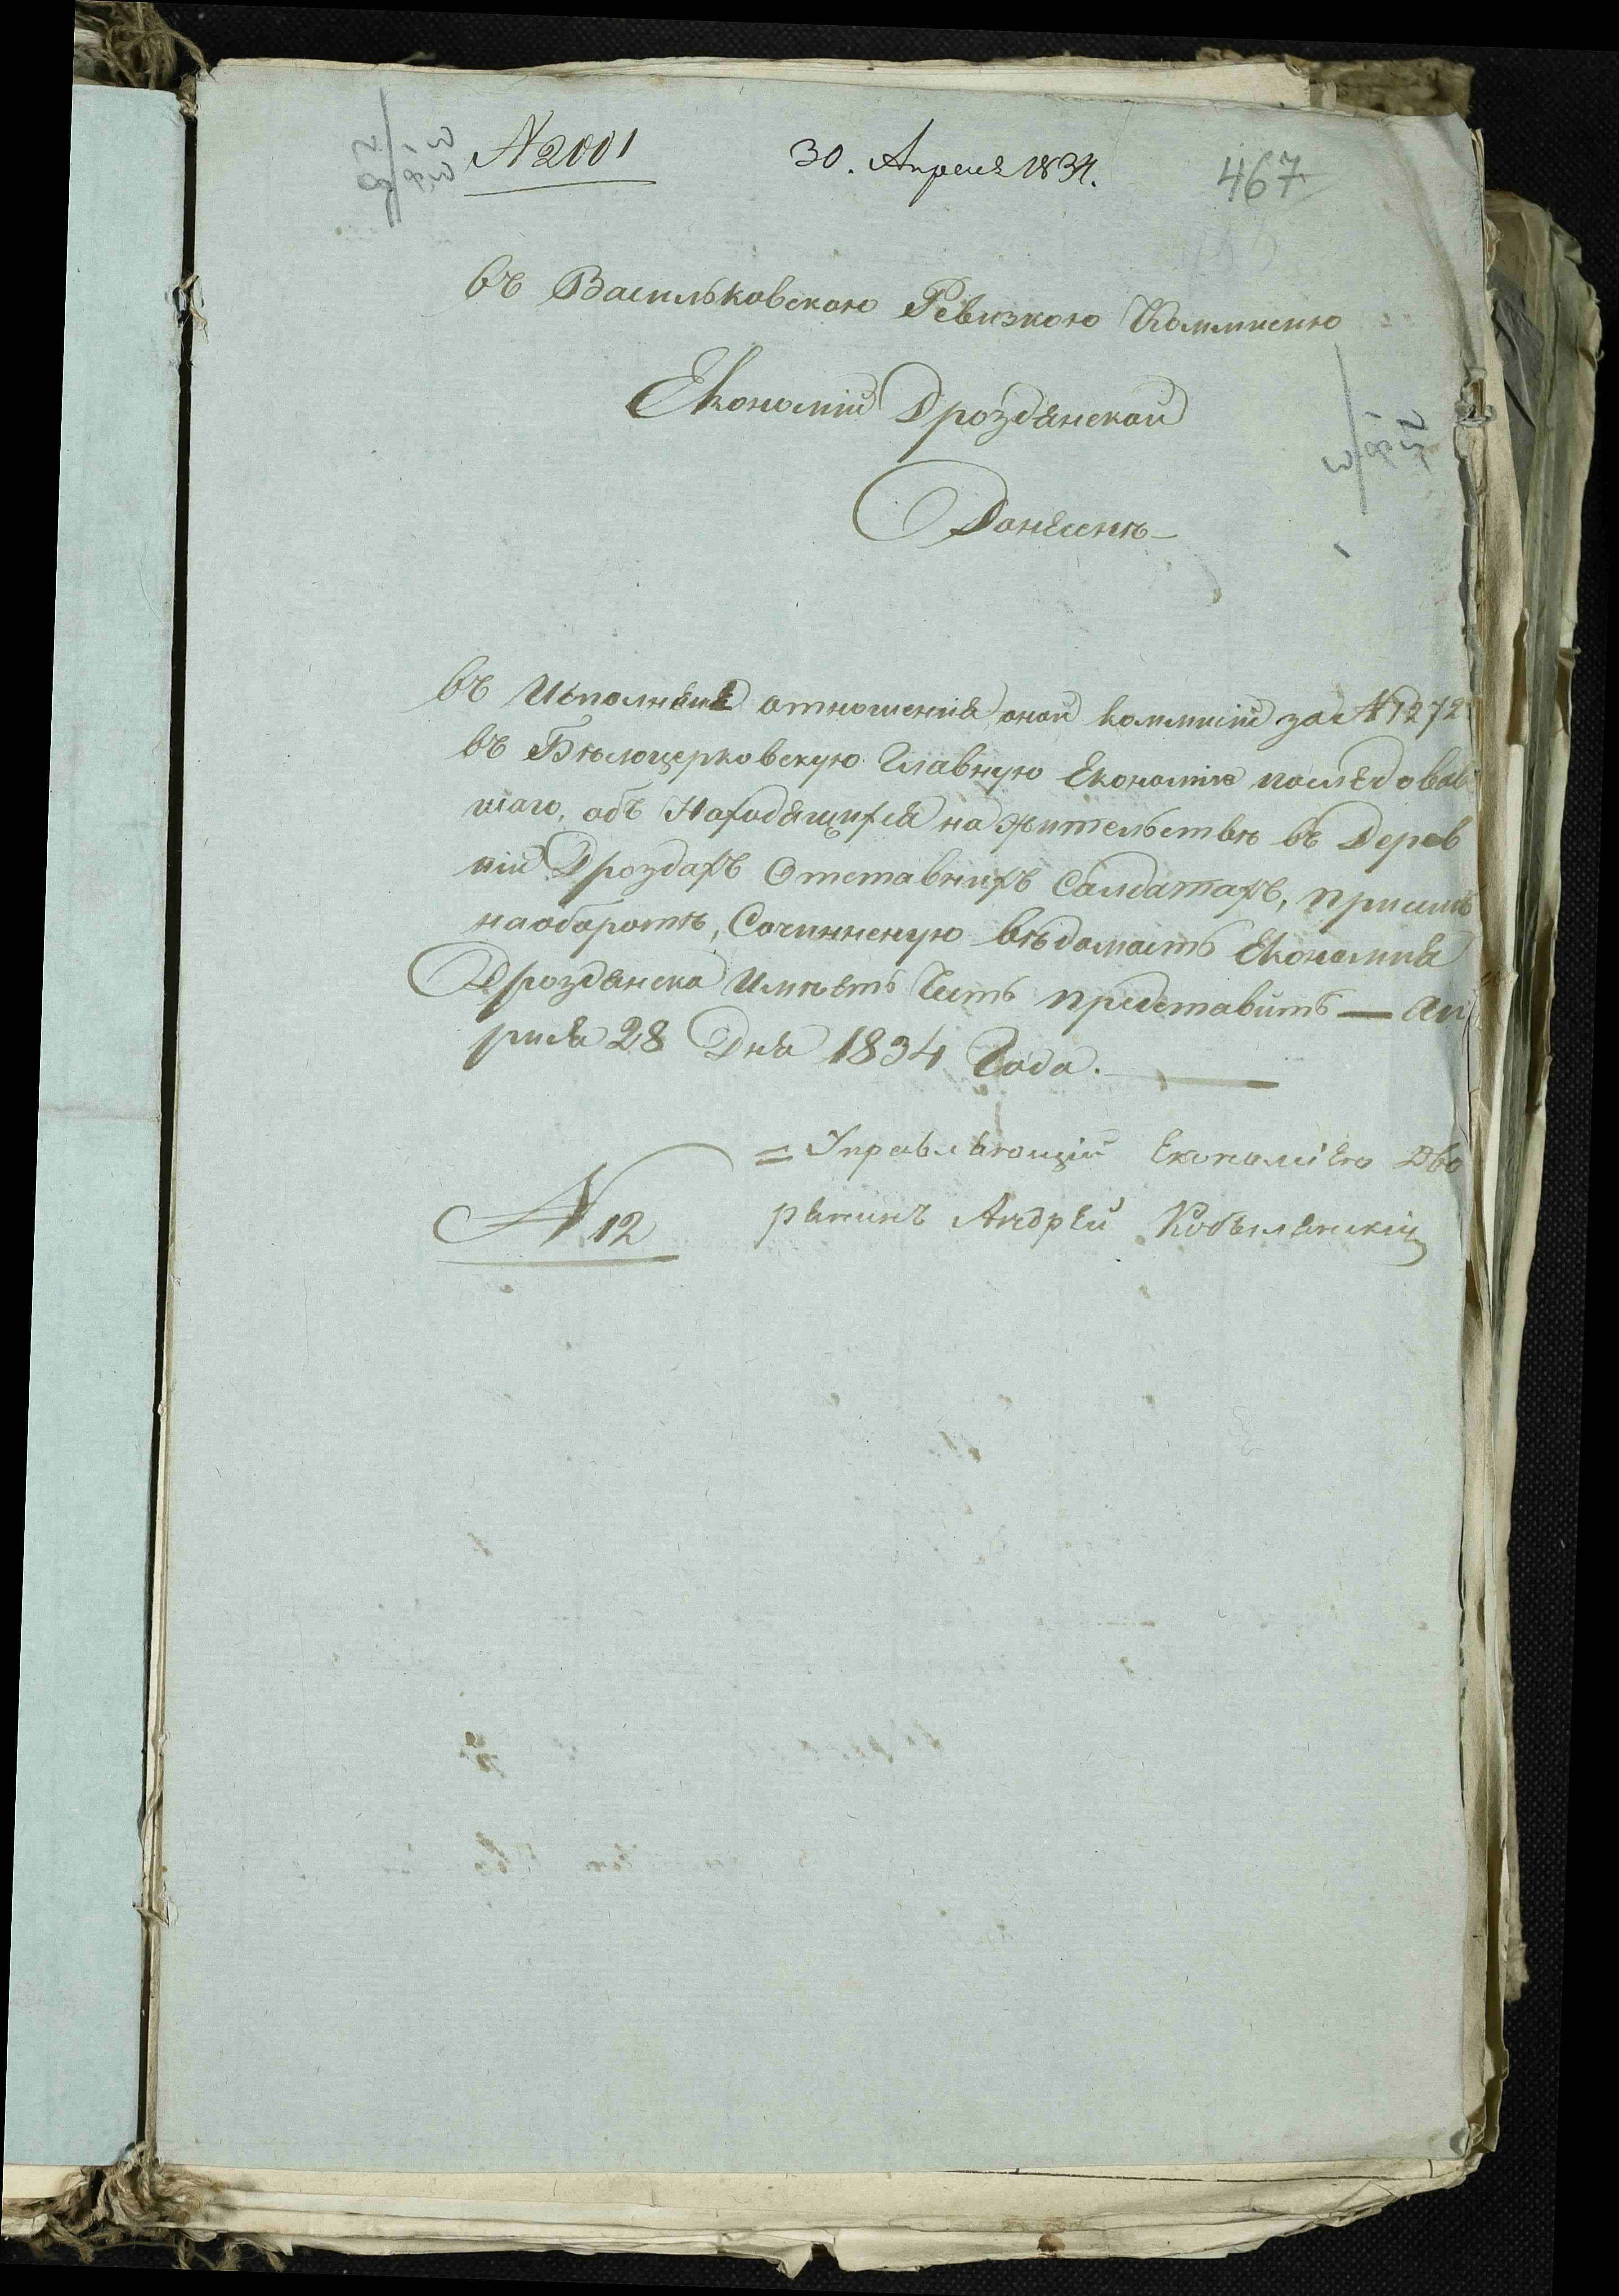 № 2001
30. Апреля 1834.
467
въ Васильковскою Ревизкою Коммисию
Економій Дроздянской
Донѣсенѣ
въ Исполнѣние отношенія оной коммисій за № 1272
въ Бѣлоцерковскую Главную Економію послѣдовав
шаго, объ Находящихся на жительствѣ въ Дерев
ній Дроздахъ Отставнихъ Салдатахъ, при симъ
на оборотѣ, Сочинненую вѣдомость Економия
Дроздянска Имѣетъ Честь представить — Ап
риля 28 Дня 1834 Года.
= Управляющій Економіею Дво
рянинъ Андрей Кобылянскій
№ 12